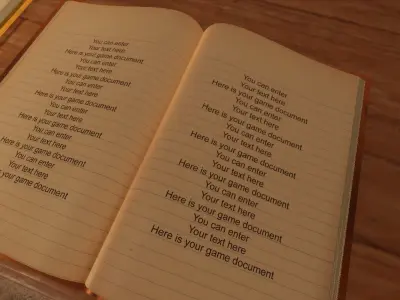 You can enter
Your text here
Here is your game document
You can enter
Your text here
Here is your game document
You can enter
Your text here
Here is your game document
You can enter
Your text here
Here is your game document
You can enter
Your text here
Here is your game document
You can enter
Your text here
is your game document
You can enter
Your text here
Here is your game document
You can enter
Your text here
Here is your game document
You can enter
Your text here
Here is your game document
You can enter
Your text here
Here is your game document
You can enter
Your text here
Here is your game document
You can enter
Your text here
Here is your game document